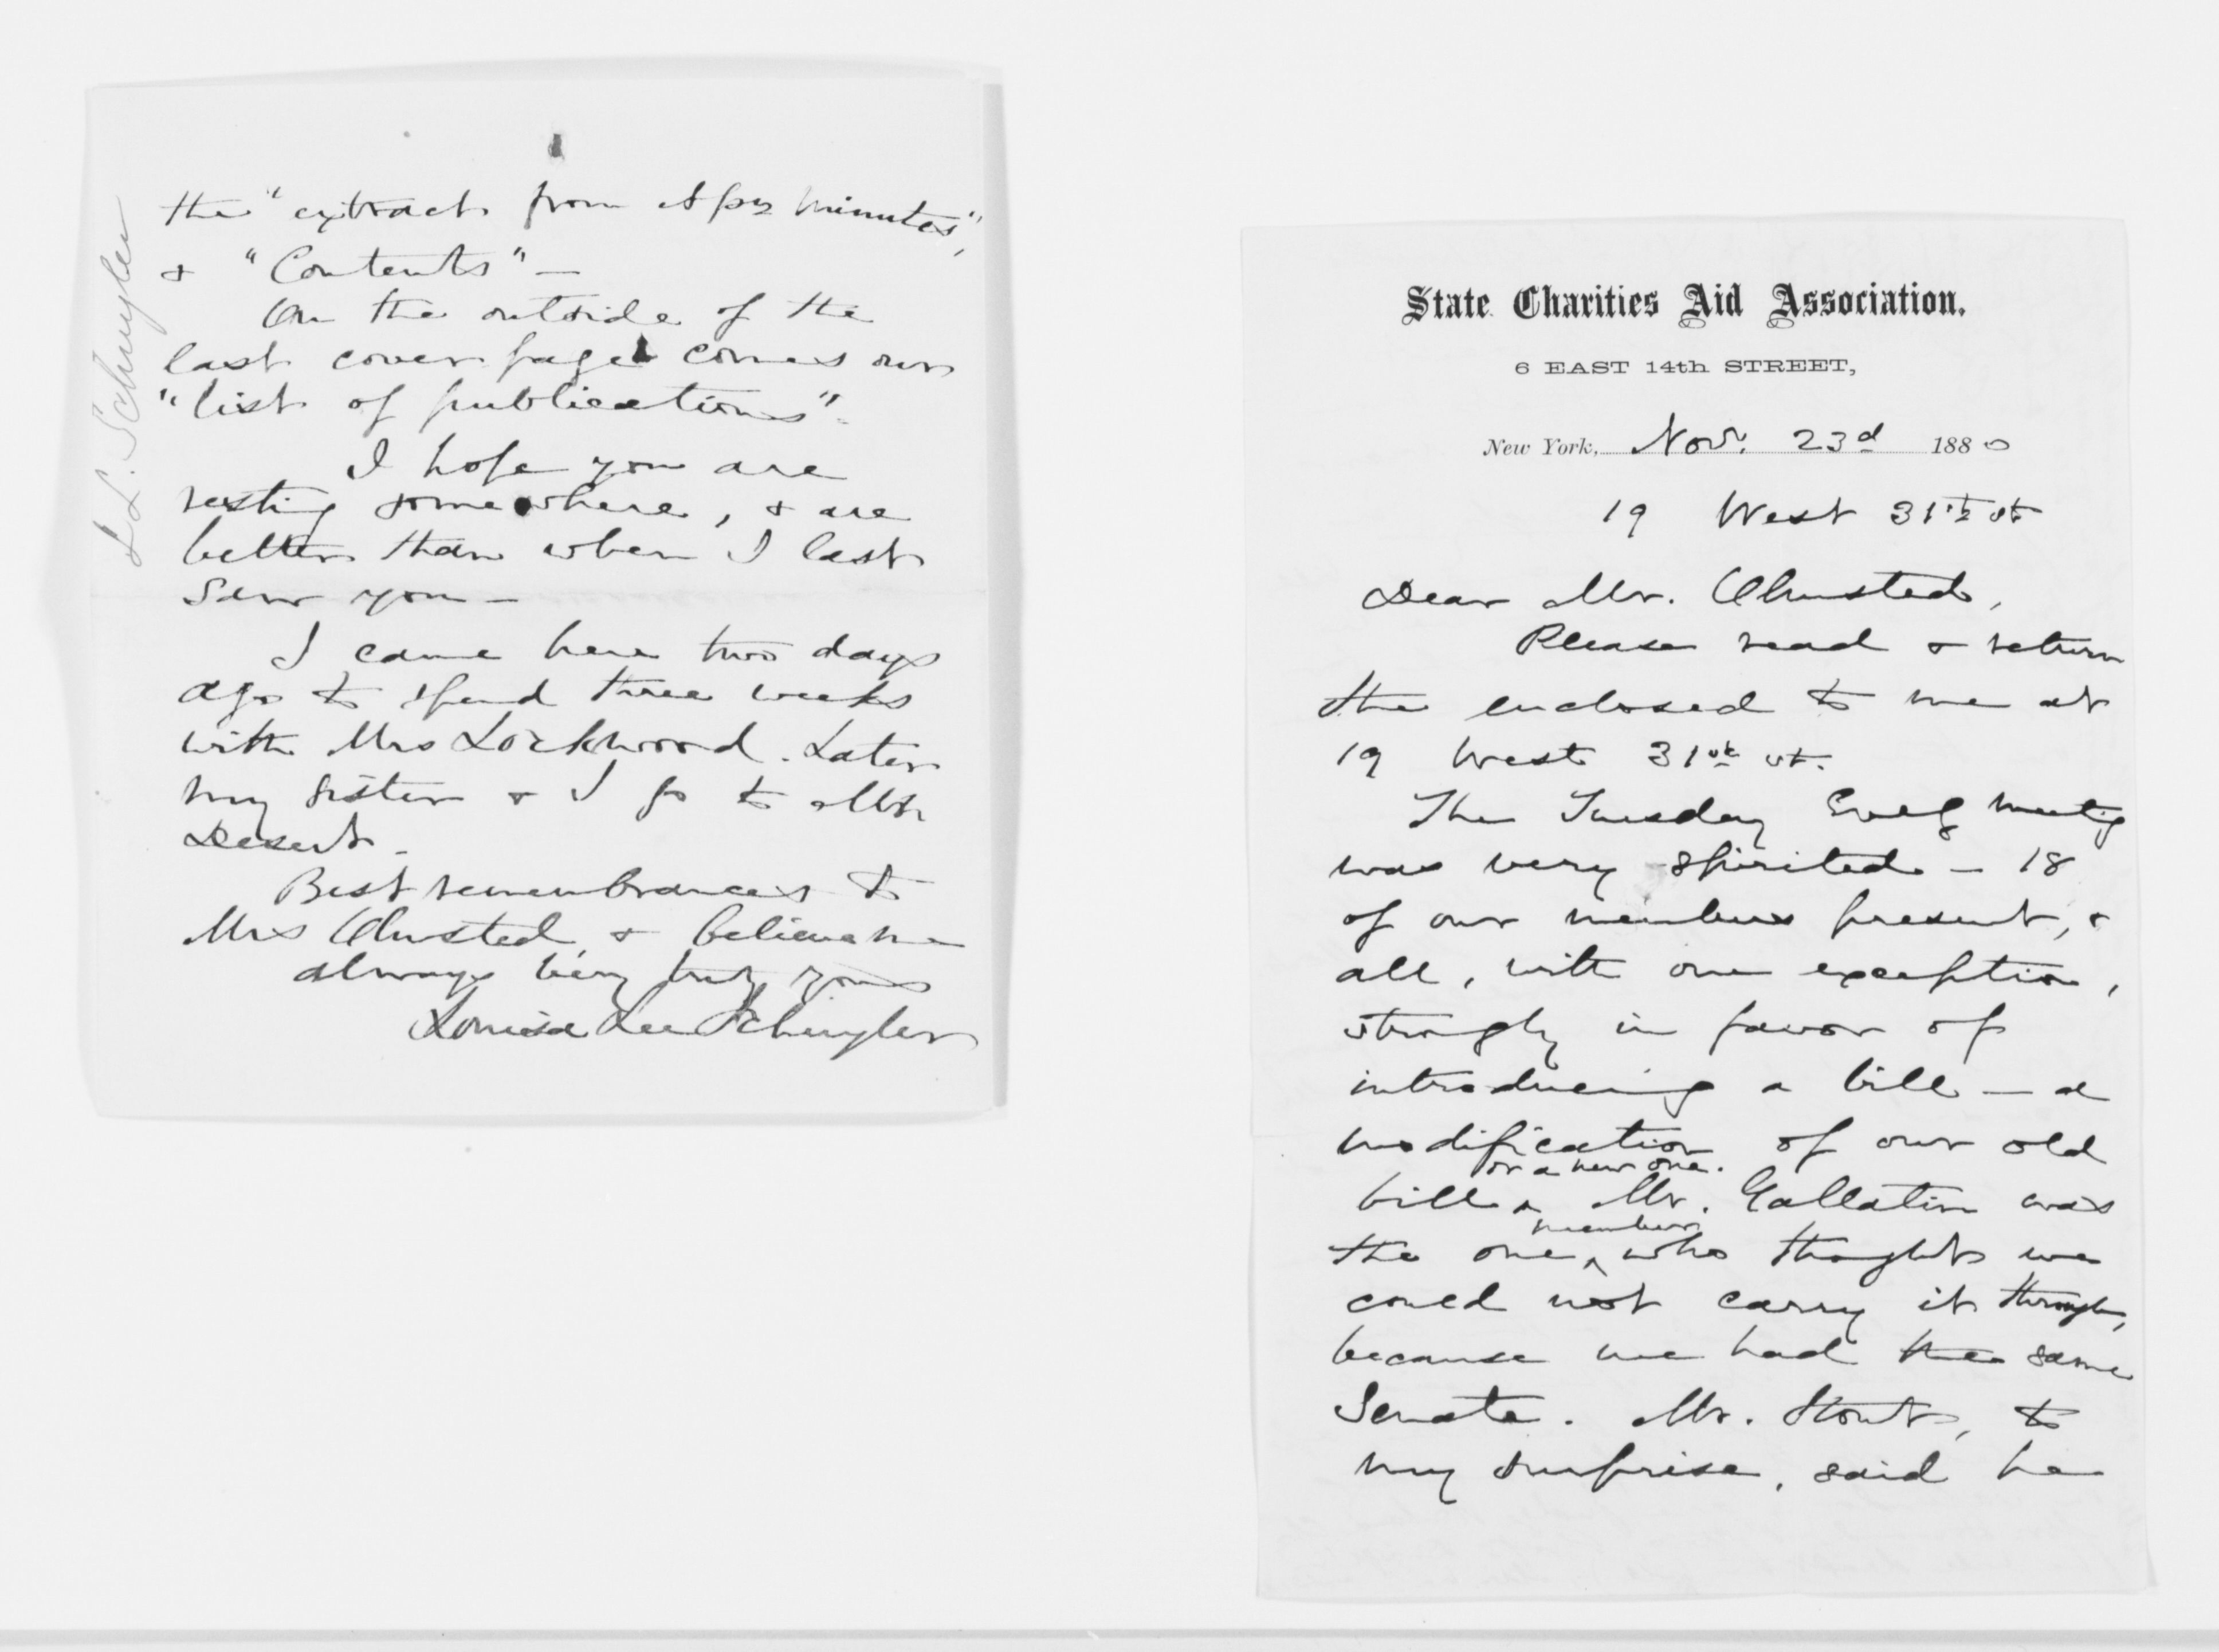 the "extract from Apr minutes",
& "Contents" —
On the outside of the
last cover page comes our
"list of publications".
I hope you are
resting somewhere, & are
better than when I last
saw you —
I came here two days
ago to spend three weeks
with Mrs Lockwood. Later
my sister & I go to Mt.
Desert.
Best remembrances to
Mrs Olmsted, & believe me
always very truly yours
Louisa Lee Schuyler
L L. Schuyler
State Charities Aid Association.
6 EAST 14th STREET,
New York, Nov. 23d 1880
19 West 31st st
Dear Mr. Olmsted,
Please read & return
the enclosed to me at
19 West 31st st.
The Tuesday Eveg meeting
was very spirited — 18
of our members present, &
all, with one exception,
strongly in favor of
introducing a bill — a
modification of our old
or a new one.
bill ^ Mr. Gallatin was
member
the one ^ who thought we
could not carry it through,
because we had the same
Senate. Mr. Stout, to
my surprise, said he